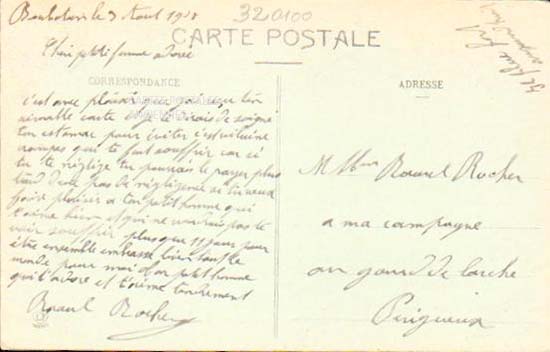 Barbotan le 3 Aout 19
320100
CARTE POSTALE
Chéri petite femme adorée
CORRESPONDANCE
ADRESSE
c'est avec plaisir que j'ai reçu ton
aimable carte et je te dirais de soigné
ton estomac pour éviter c'est
crampes que te fait souffrir car si
tu te néglige tu pourrais le payer plus
tard donc pas de négligence si tu veux
faire plaisir a ton petit homme qui
t'aime bien et qui ne voudrais pas te
voir souffrir plus que 11 jours pour
être ensemble embrasse bien tout le
monde pour moi ton petit homme
qui t'adore et t'aime tendrement
Raoul Rocher
M Mme Raoul Rocher
a ma campagne
au gour de l'arche
Périgueux